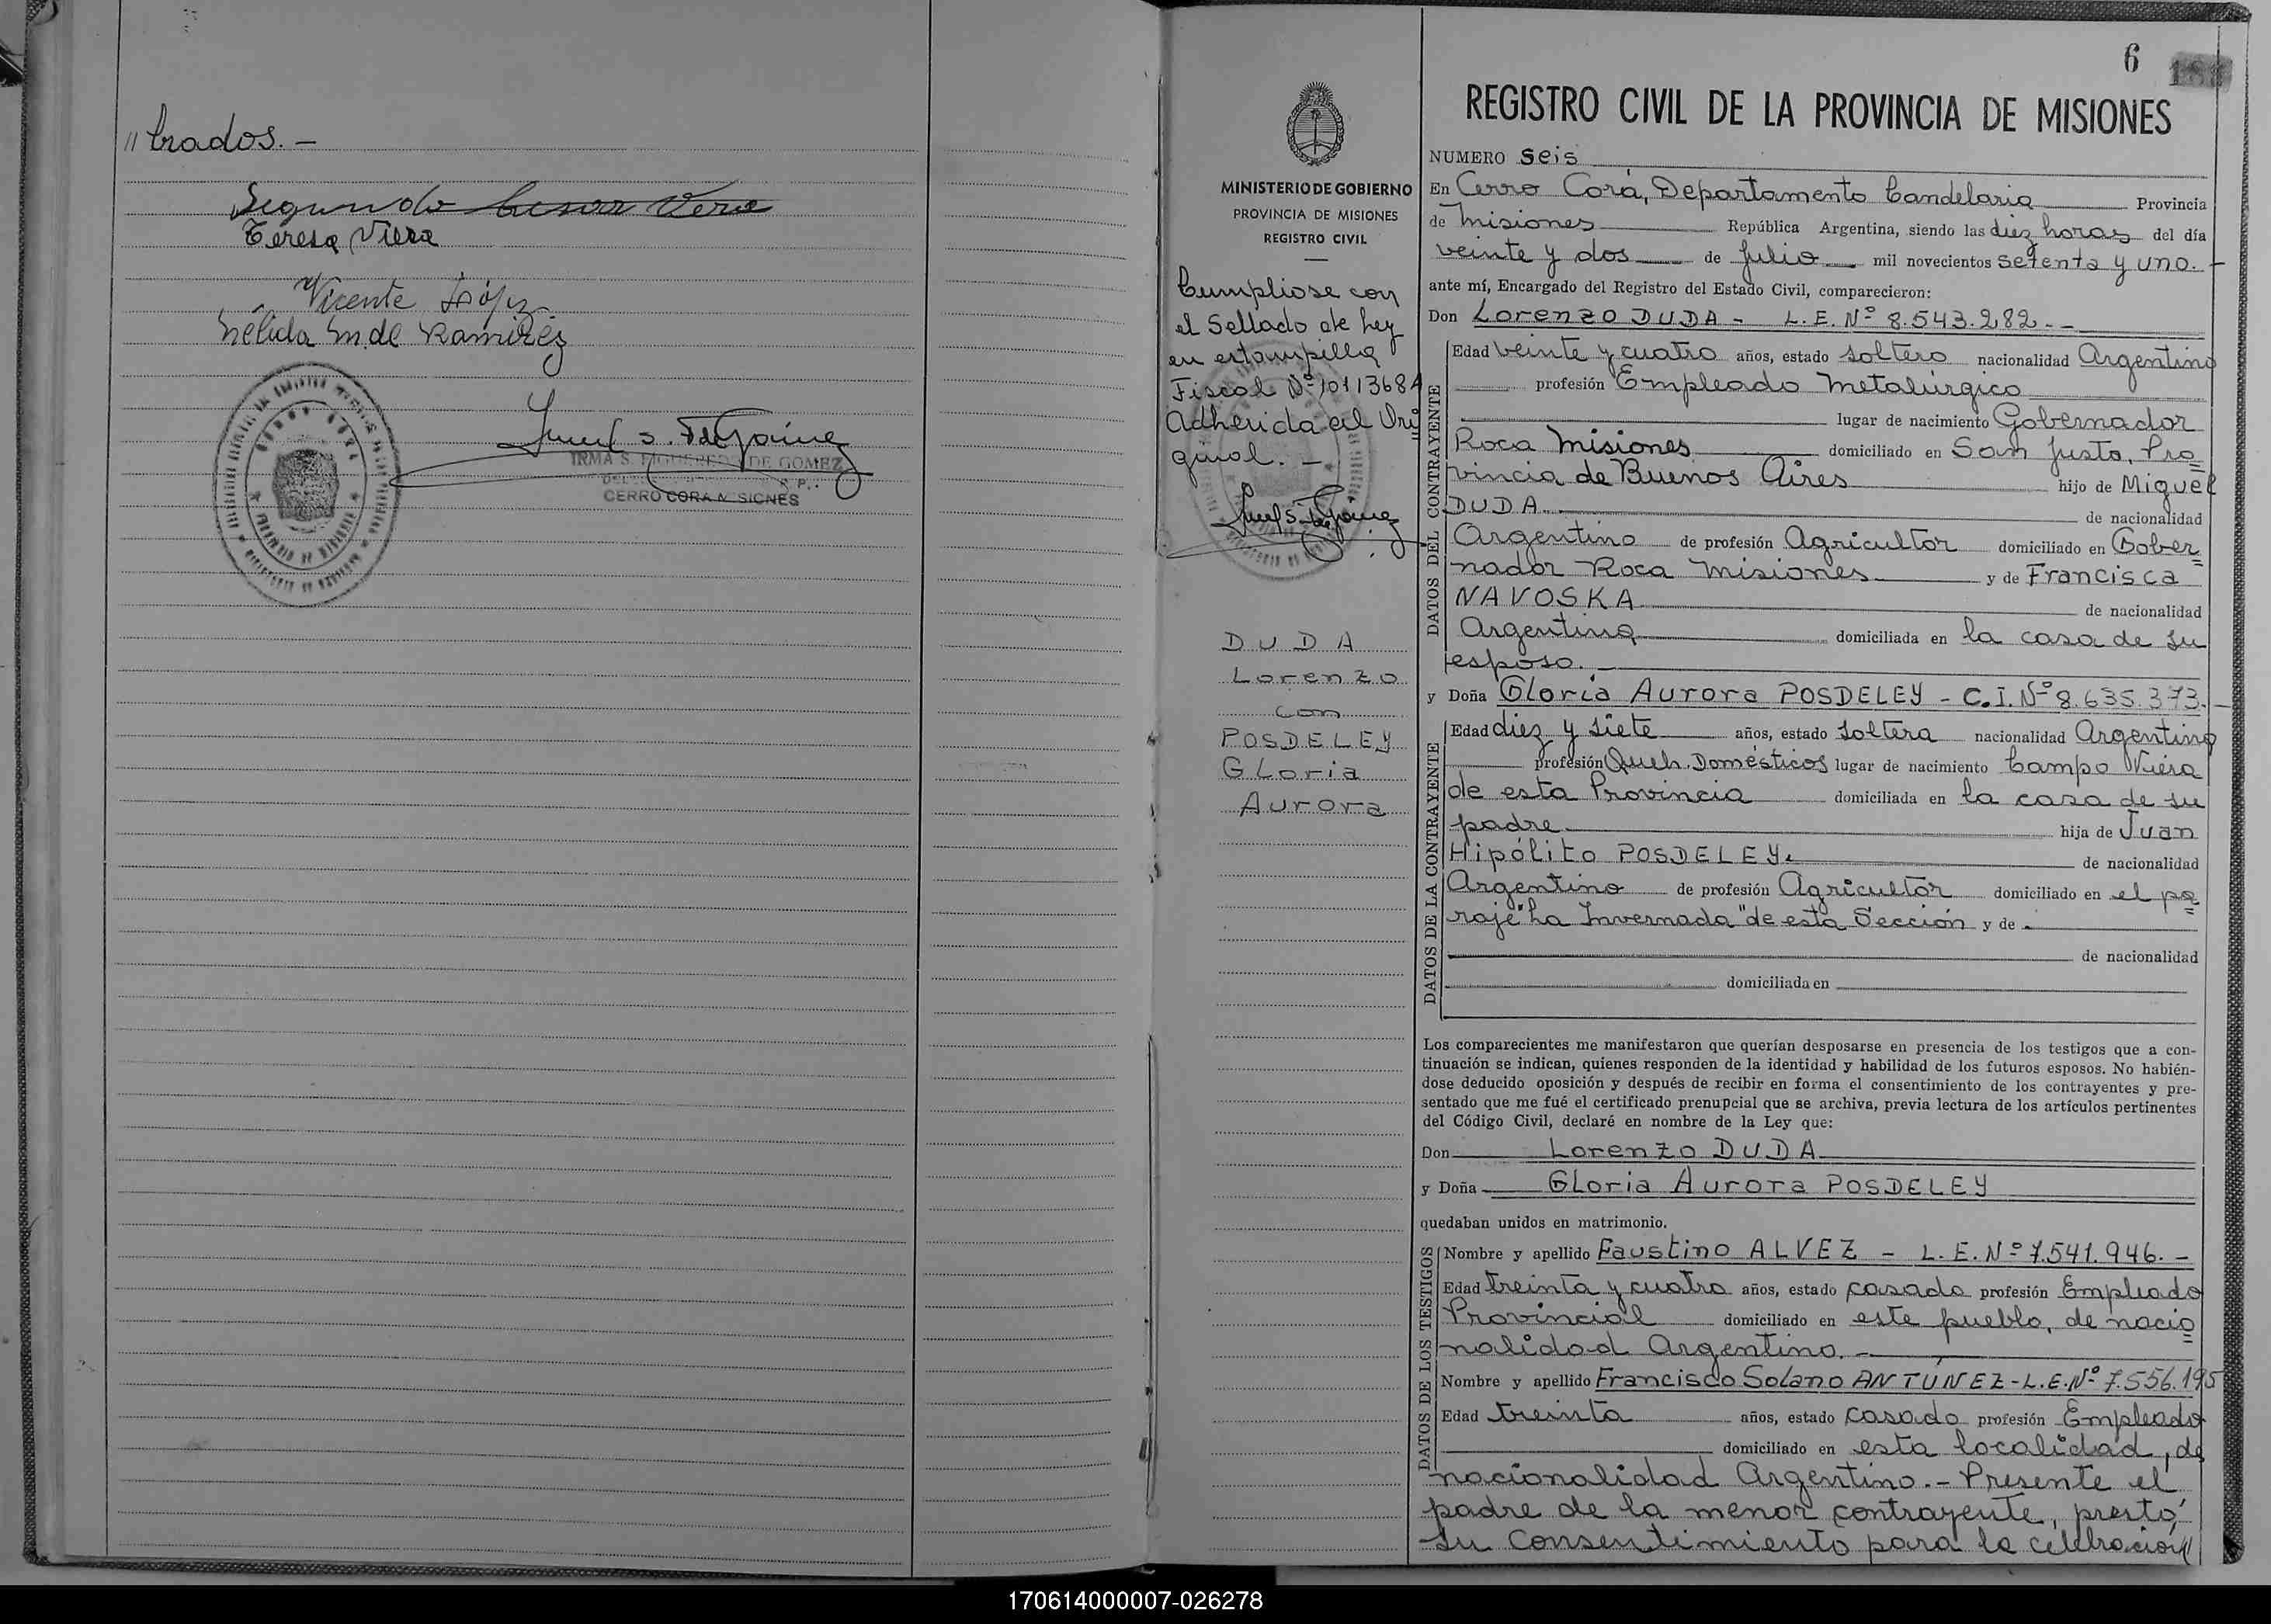 // trados. -
Segundo
Teresa Viera
Vicente López
Nélida M. de Ramírez
IRMA S. FIGUEREDO DE GOMEZ
CERRO CORA MISIONES
6
REGISTRO CIVIL DE LA PROVINCIA DE MISIONES
MINISTERIO DE GOBIERNO
PROVINCIA DE MISIONES
REGISTRO CIVIL
Cumpliose con
el Sellado de ley
en estampilla
Fiscal Nº 1011368A
Adherida al Ori=
ginal. -
DUDA
Lorenzo
con
POSDELEY
Gloria
Aurora
NUMERO seis
En Cerro Corá, Departamento Candelaria Provincia
de Misiones República Argentina, siendo las diez horas del día
veinte y dos de Julio mil novecientos setenta y uno. -
ante mí, Encargado del Registro del Estado Civil, comparecieron:
Don Lorenzo DUDA - L.E. Nº 8.543.282. -
DATOS DEL CONTRAYENTE
Edad veinte y cuatro años, estado soltero nacionalidad Argentino
profesión Empleado Metalúrgico
lugar de nacimiento Gobernador
Roca Misiones domiciliado en San Justo, Pro=
vincia de Buenos Aires hijo de Miguel
DUDA. de nacionalidad
Argentino de profesión Agricultor domiciliado en Gober=
nador Roca Misiones y de Francisca
NAVOSKA de nacionalidad
Argentina domiciliada en la casa de su
esposo. -
y Doña Gloria Aurora POSDELEY - C.I. Nº 8.635.373. -
DATOS DE LA CONTRAYENTE
Edad diez y siete años, estado soltera nacionalidad Argentina
profesión Queh. Domésticos lugar de nacimiento Campo Viera
de esta Provincia domiciliada en la casa de su
padre hija de Juan
Hipólito POSDELEY. de nacionalidad
Argentino de profesión Agricultor domiciliado en el pa=
raje "La Invernada" de esta Sección y de -
de nacionalidad
domiciliada en
Los comparecientes me manifestaron que querían desposarse en presencia de los testigos que a con-
tinuación se indican, quienes responden de la identidad y habilidad de los futuros esposos. No habién-
dose deducido oposición y después de recibir en forma el consentimiento de los contrayentes y pre-
sentado que me fué el certificado prenupcial que se archiva, previa lectura de los artículos pertinentes
del Código Civil, declaré en nombre de la Ley que:
Don Lorenzo DUDA
y Doña Gloria Aurora POSDELEY
quedaban unidos en matrimonio.
DATOS DE LOS TESTIGOS
Nombre y apellido Faustino ALVEZ - L.E. Nº 7.541.946. -
Edad treinta y cuatro años, estado casado profesión Empleado
Provincial domiciliado en este pueblo, de nacio=
nalidad Argentino. -
Nombre y apellido Francisco Solano ANTÚNEZ - L.E. Nº 7.556.195
Edad treinta años, estado casado profesión Empleado
domiciliado en esta localidad, de
nacionalidad Argentino. - Presente el
padre de la menor contrayente, prestó
su consentimiento para la celebración
170614000007-026278